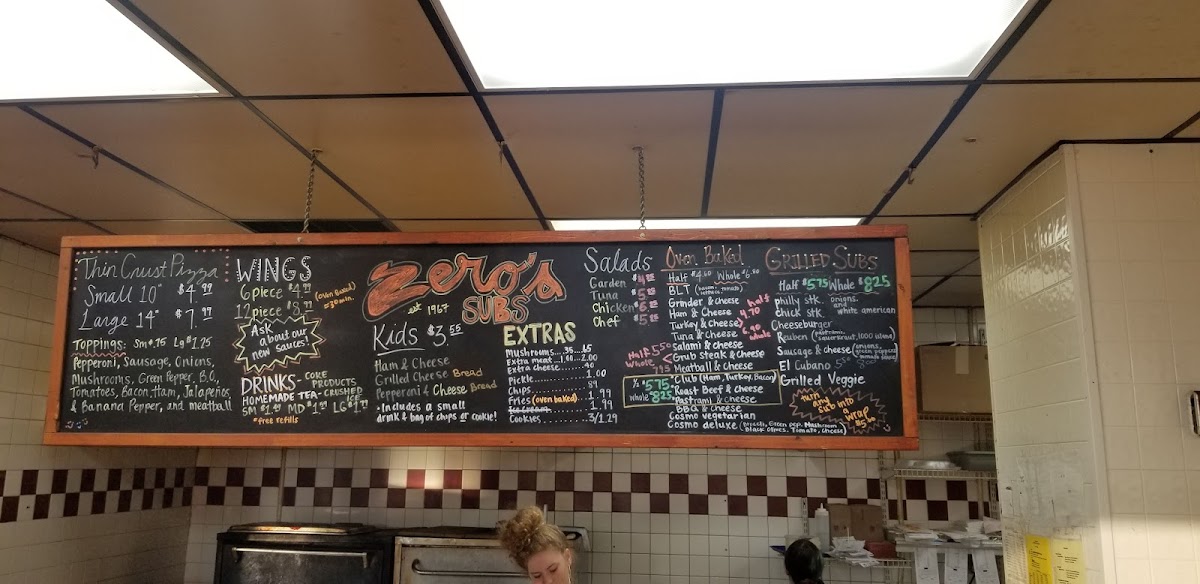 Thin Crust Pizza
Small 10" $4.99
Large 14" $7.99
Toppings: Sm $.95 Lg $1.25
Pepperoni, Sausage, Onions,
Mushrooms, Green Pepper, B.O.,
Tomatoes, Bacon, Ham, Jalapeños,
& Banana Pepper, and meatball
WINGS
6 piece $4.99
12 piece $8.99
(oven Baked)
±30 min.
Ask
about our
new sauces!
DRINKS - COKE
PRODUCTS
HOMEMADE TEA - CRUSHED
ICE
SM $1.49 MD $1.99 LG $1.99
*free refills
zero's
SUBS
est 1967
Kids $3.55
Ham & Cheese
Grilled Cheese Bread
Pepperoni & Cheese Bread
*Includes a small
drink & bag of chips or cookie!
EXTRAS
Mushrooms...35...65
Extra meat...1.00...2.00
Extra cheese......40
Pickle............1.00
Chips.............89
Fries (oven baked)..1.99
Ice Cream.........1.99
Cookies.........3/1.29
Salads
Garden
Tuna
Chicken
Chef
Oven Baked
Half $4.60 Whole $6.80
BLT (bacon, lettuce, tomato)
Grinder & Cheese
Ham & Cheese
Turkey & Cheese
Tuna & Cheese
Salami & Cheese
half
4.70
6.90
whole
Half 5.50
Whole 7.95
Grub Steak & Cheese
Meatball & Cheese
½ $5.75
whole $8.25
*Club (Ham, Turkey, Bacon)
*Roast Beef & Cheese
*Pastrami & Cheese
BBQ & Cheese
Cosmo vegetarian
Cosmo deluxe (Broccoli, Green pep, Mushroom
Black Olives, Tomato, Cheese)
GRILLED SUBS
Half $5.75 Whole $8.25
philly stk. onions,
chick stk. and
white american
Cheeseburger
Reuben (pastrami, sauerkraut, 1000 island)
Sausage & Cheese (onions, green peppers, tomato sauce)
El Cubano 5.50 8.00
Grilled Veggie
Turn
any sub into
a wrap